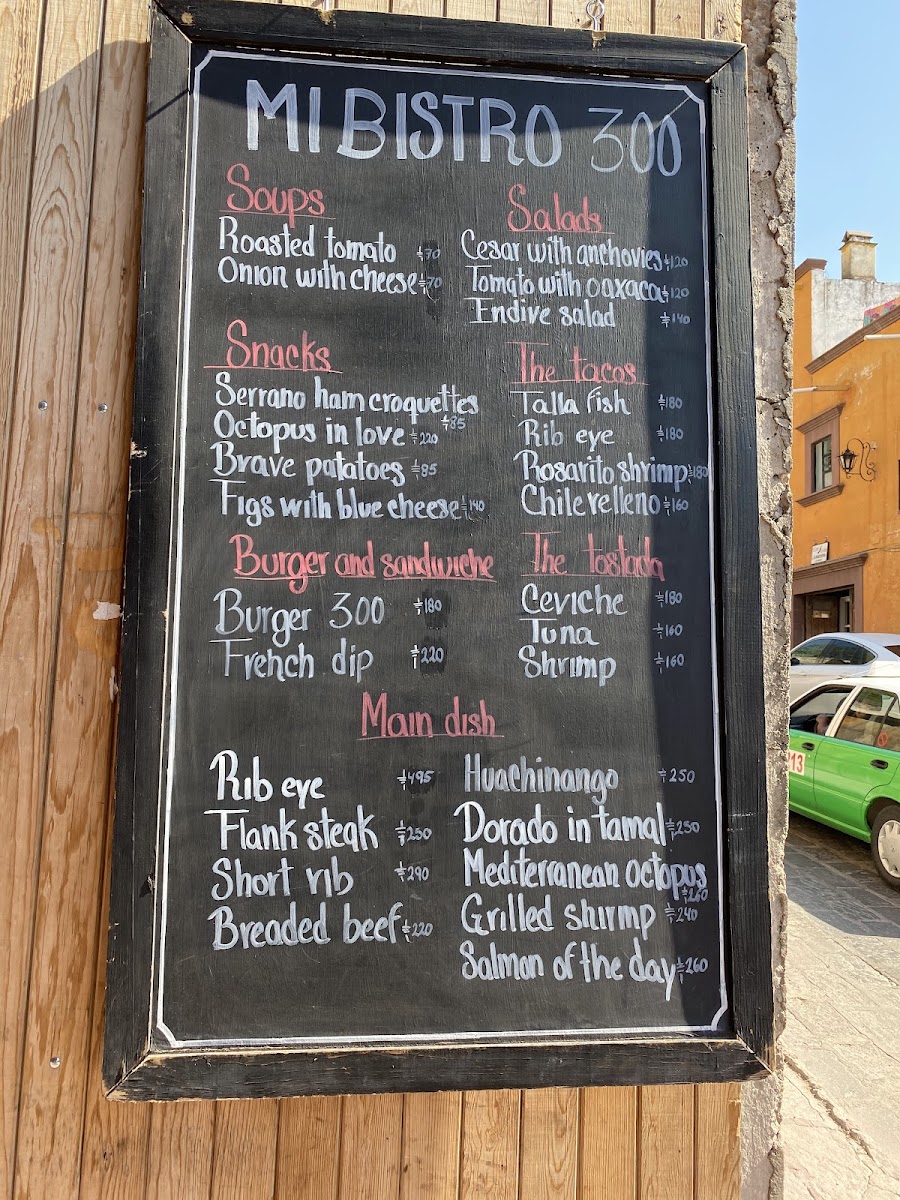 MI BISTRO 300
Soups
Roasted tomato $70
Onion with cheese $70
Salads
Cesar with anchovies $120
Tomato with oaxaca $120
Endive salad $140
Snacks
Serrano ham croquettes
$85
Octopus in love $220
Brave patatoes $85
Figs with blue cheese $140
The tacos
Talla fish $180
Rib eye $180
Rosarito shrimp $180
Chile relleno $160
Burger and sandwiche
Burger 300 $180
French dip $220
The tostada
Ceviche $180
Tuna $160
Shrimp $160
Main dish
Rib eye $495
Flank steak $250
Short rib $290
Breaded beef $220
Huachinango $250
Dorado in tamal $250
Mediterranean octopus
$260
Grilled shirmp $240
Salmon of the day $260
713